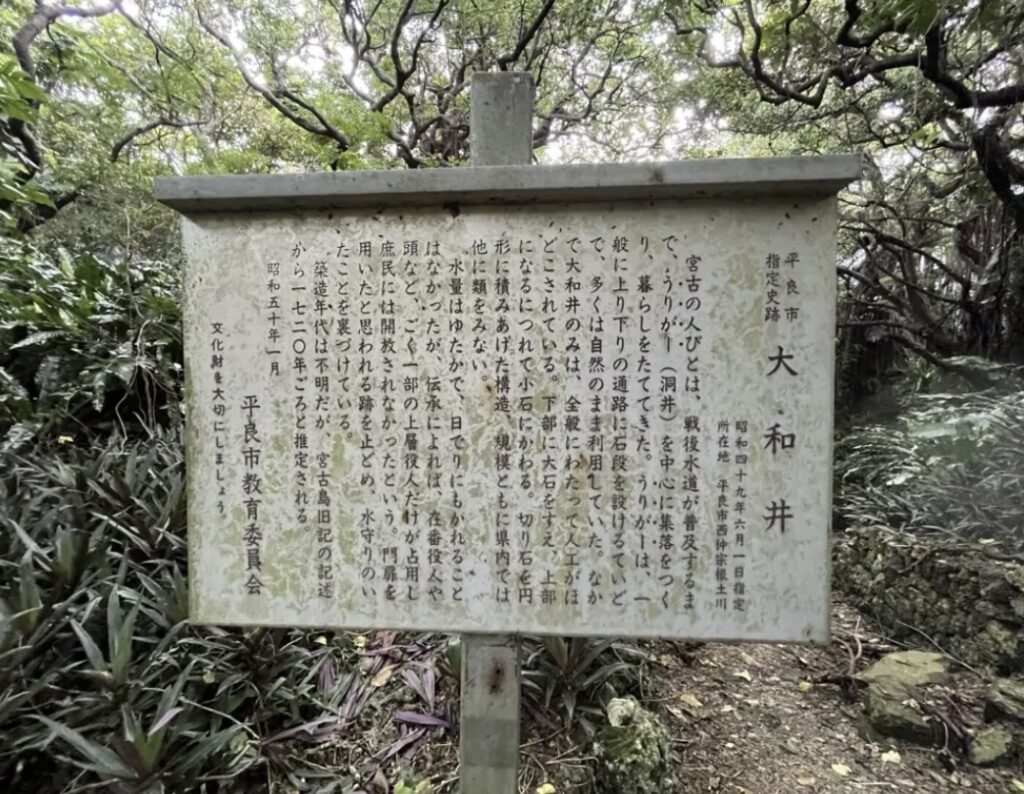 平良市
指定史跡
大和井
昭和四十九年六月一日指定
所在地　平良市西仲宗根土川
宮古の人びとは、戦後水道が普及するま
で、うりがー（洞井）を中心に集落をつく
り、暮らしをたててきた。うりがーは、一
般に上り下りの通路に石段を設けるていど
で、多くは自然のまま利用していた。なか
で大和井のみは、全般にわたって人工がほ
どこされている。下部に大石をすえ、上部
になるにつれて小石にかわる。切り石を円
形に積みあげた構造、規模ともに県内では
他に類をみない。
水量はゆたかで、日でりにもかれること
はなかったが、伝承によれば、在番役人や
頭など、ごく一部の上層役人だけが占用し
庶民には開放されなかったという。門扉を
用いたと思われる跡を止どめ、水守りのい
たことを裏づけている。
築造年代は不明だが、宮古島旧記の記述
から一七二〇年ごろと推定される。
昭和五十年一月
平良市教育委員会
文化財を大切にしましょう。